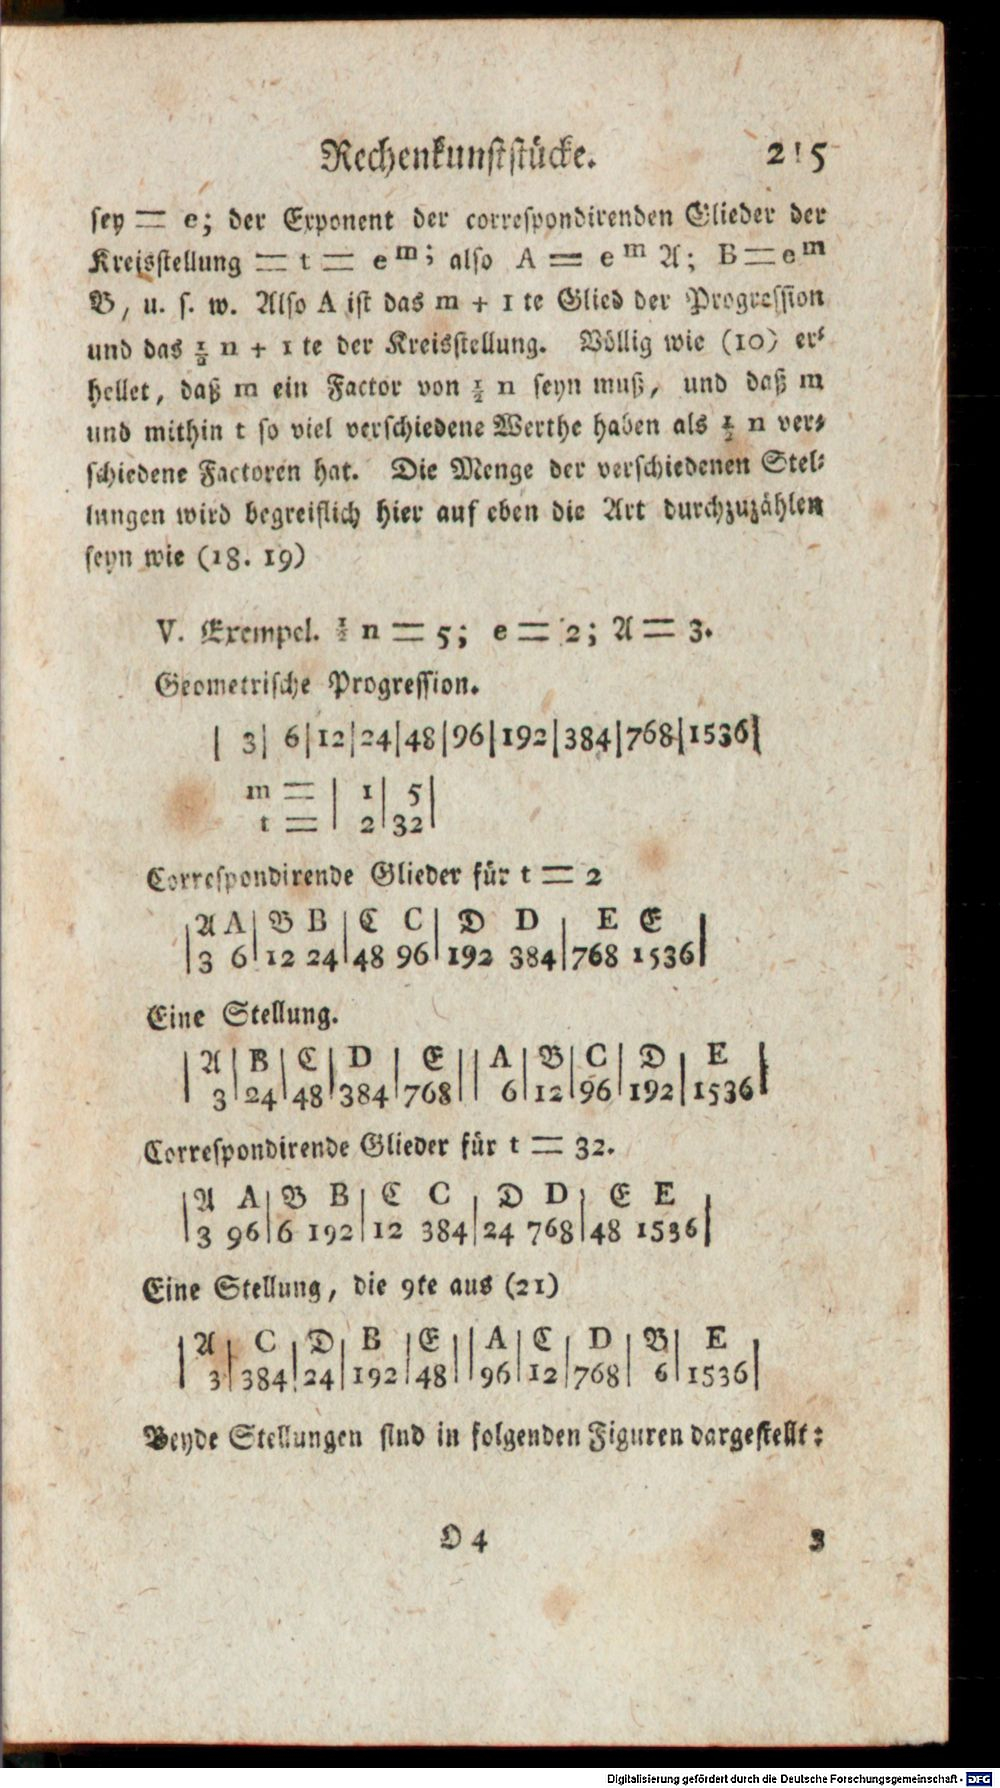 Rechenkunststücke. 215
sey = e; der Exponent der correspondirenden Glieder der
Kreisstellung = t = e^m; also A = e^m 𝔄; B = e^m
𝔅, u. s. w. Also A ist das m + 1 te Glied der Progression
und das ½ n + 1 te der Kreisstellung. Völlig wie (10) er-
hellet, daß m ein Factor von ½ n seyn muß, und daß m
und mithin t so viel verschiedene Werthe haben als ½ n ver-
schiedene Factoren hat. Die Menge der verschiedenen Stel-
lungen wird begreiflich hier auf eben die Art durchzuzählen
seyn wie (18. 19)
V. Exempel. ½ n = 5; e = 2; 𝔄 = 3.
Geometrische Progression.
| 3| 6|12|24|48|96|192|384|768|1536|
m = | 1| 5|
t = | 2|32|
Correspondirende Glieder für t = 2
|𝔄 A| 𝔅 B |ℭ C| 𝔇 D | E 𝔈 |
|3 6|12 24|48 96|192 384|768 1536|
Eine Stellung.
| 𝔄 | B | ℭ | D | 𝔈 || A | 𝔅 | C | 𝔇 | E |
| 3|24|48|384|768|| 6|12|96|192|1536|
Correspondirende Glieder für t = 32.
|𝔄 A| 𝔅 B | ℭ C | 𝔇 D| 𝔈 E |
|3 96|6 192|12 384|24 768|48 1536|
Eine Stellung, die 9te aus (21)
| 𝔄 | C | 𝔇 | B | 𝔈 || A | ℭ | D | 𝔅 | E |
| 3|384|24|192|48||96|12|768| 6|1536|
Beyde Stellungen sind in folgenden Figuren dargestellt:
O 4 3
Digitalisierung gefördert durch die Deutsche Forschungsgemeinschaft - DFG